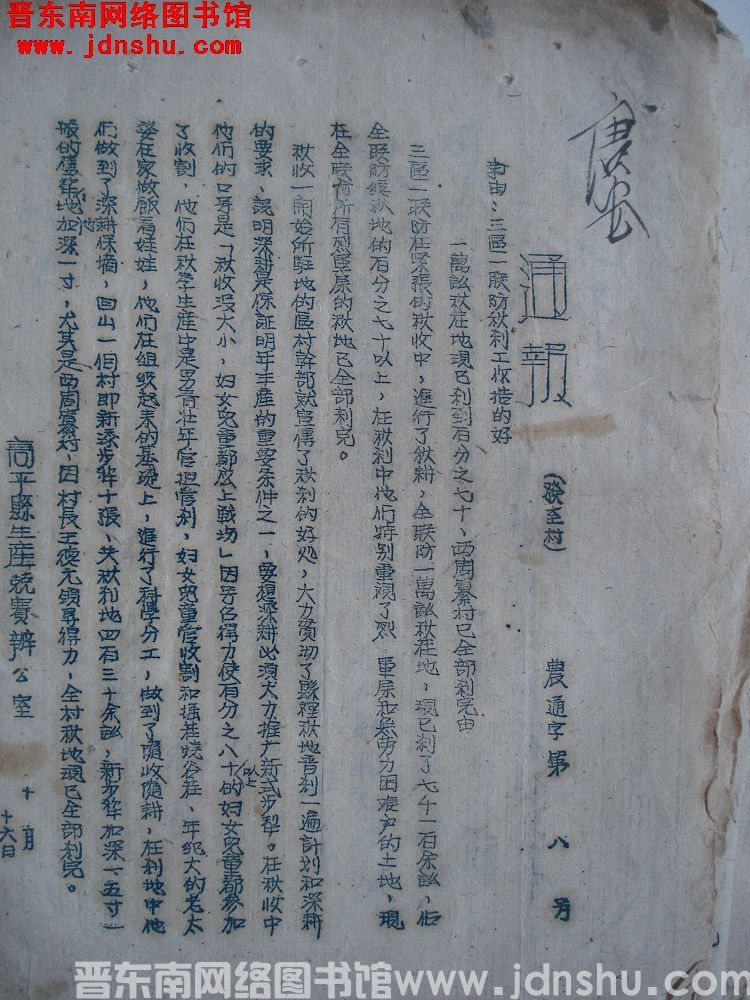 晋东南网络图书馆
www.jdnshu.com
通報
(發至村)
農通字第八号
事由：三區一联防秋利工作搞的好
一萬畝秋茬地現已利到百分之七十，西周纂村已全部利完由
三區一联防在緊張的秋收中，進行了秋耕，全联防一萬畝秋茬地，現已利了七千一百余畝，佔
全联防總秋地的百分之七十以上，在秋利中他們特别重視了烈軍屬和無劳力困难户的土地，現
在全联防所有烈軍屬的秋地已全部利完。
秋收一開始所駐地的區村幹部就宣傳了秋利的好処，大力貫彻了縣裡秋地普利一遍計划和深耕
的要求，説明深耕是保証明年丰産的重要条件之一，要想深耕必須大力推广新式步犁。在秋收中
他們的口号是「秋收没大小，妇女兒童都成上戰场」因号召得力使百分之八十以上的妇女兒童都参加
了收割，他們在秋季生産中是男青壮年管担管利，妇女兒童管收割和掘茬燒谷茬，年紀大的老太
婆在家做飯看娃娃，他們在組织起来的基礎上，進行了科學分工，做到了隨收隨耕，在利地中他
們做到了深耕保墒，回山一個村即新添步犂十張，共秋利地四百三十余畝，新步犂加深一、五寸一
般的舊犂地加深一寸，尤其是西周纂村，因村長王發元領導得力，全村秋地現已全部利完。
高平縣生産競賽辦公室
十月
十六日
晋东南网络图书馆www.jdnshu.com